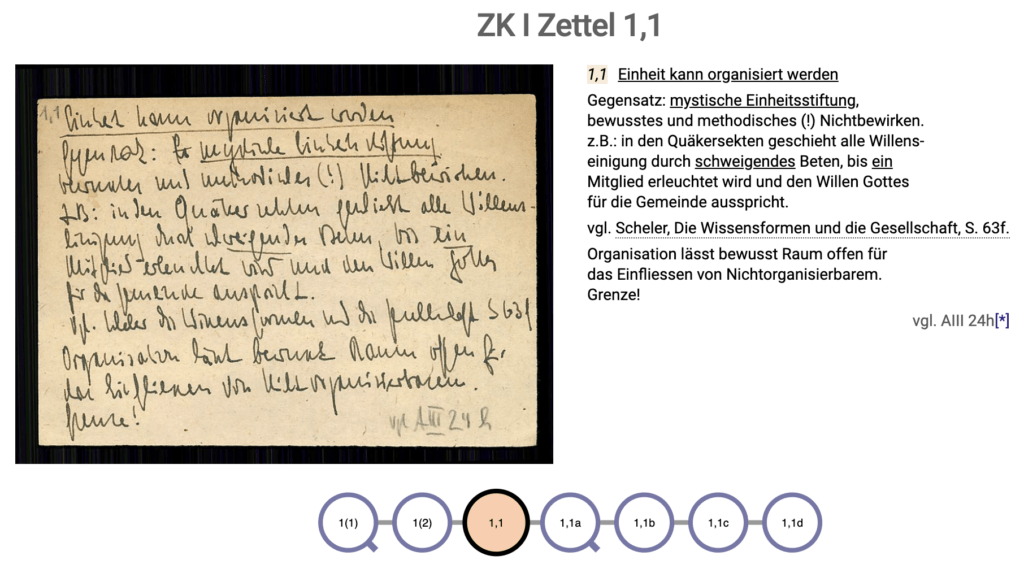 ZK I Zettel 1,1
1,1 Einheit kann organisiert werden
Gegensatz: Es mystische Einheitsstiftung,
bewusstes und methodisches (!) Nichtbewirken.
z.B: in den Quäkersekten geschieht alle Willens-
einigung durch schweigendes Beten, bis ein
Mitglied erleuchtet wird und den Willen Gottes
für die Gemeinde ausspricht.
Vgl. Scheler die Wissensformen und die Gesellschaft S 63f
Organisation lässt bewusst Raum offen f.
das Einfliessen von Nichtorganisierbarem.
Grenze!
vgl AIII 24 h
1,1 Einheit kann organisiert werden
Gegensatz: mystische Einheitsstiftung,
bewusstes und methodisches (!) Nichtbewirken.
z.B.: in den Quäkersekten geschieht alle Willens-
einigung durch schweigendes Beten, bis ein
Mitglied erleuchtet wird und den Willen Gottes
für die Gemeinde ausspricht.
vgl. Scheler, Die Wissensformen und die Gesellschaft, S. 63f.
Organisation lässt bewusst Raum offen für
das Einfliessen von Nichtorganisierbarem.
Grenze!
vgl. AIII 24h[*]
1(1) 1(2) 1,1 1,1a 1,1b 1,1c 1,1d